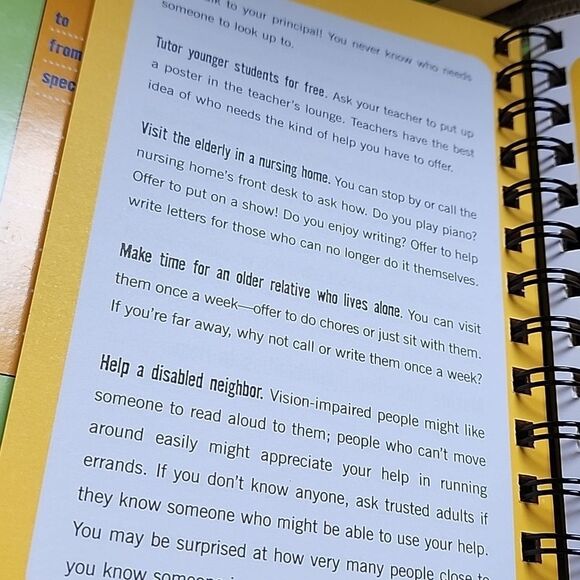 to
from
spec
to your principal! You never know who needs
someone to look up to.
Tutor younger students for free. Ask your teacher to put up
a poster in the teacher's lounge. Teachers have the best
idea of who needs the kind of help you have to offer.
Visit the elderly in a nursing home. You can stop by or call the
nursing home's front desk to ask how. Do you play piano?
Offer to put on a show! Do you enjoy writing? Offer to help
write letters for those who can no longer do it themselves.
Make time for an older relative who lives alone. You can visit
them once a week—offer to do chores or just sit with them.
If you're far away, why not call or write them once a week?
Help a disabled neighbor. Vision-impaired people might like
someone to read aloud to them; people who can't move
around easily might appreciate your help in running
errands. If you don't know anyone, ask trusted adults if
they know someone who might be able to use your help.
You may be surprised at how very many people close to
you know someone